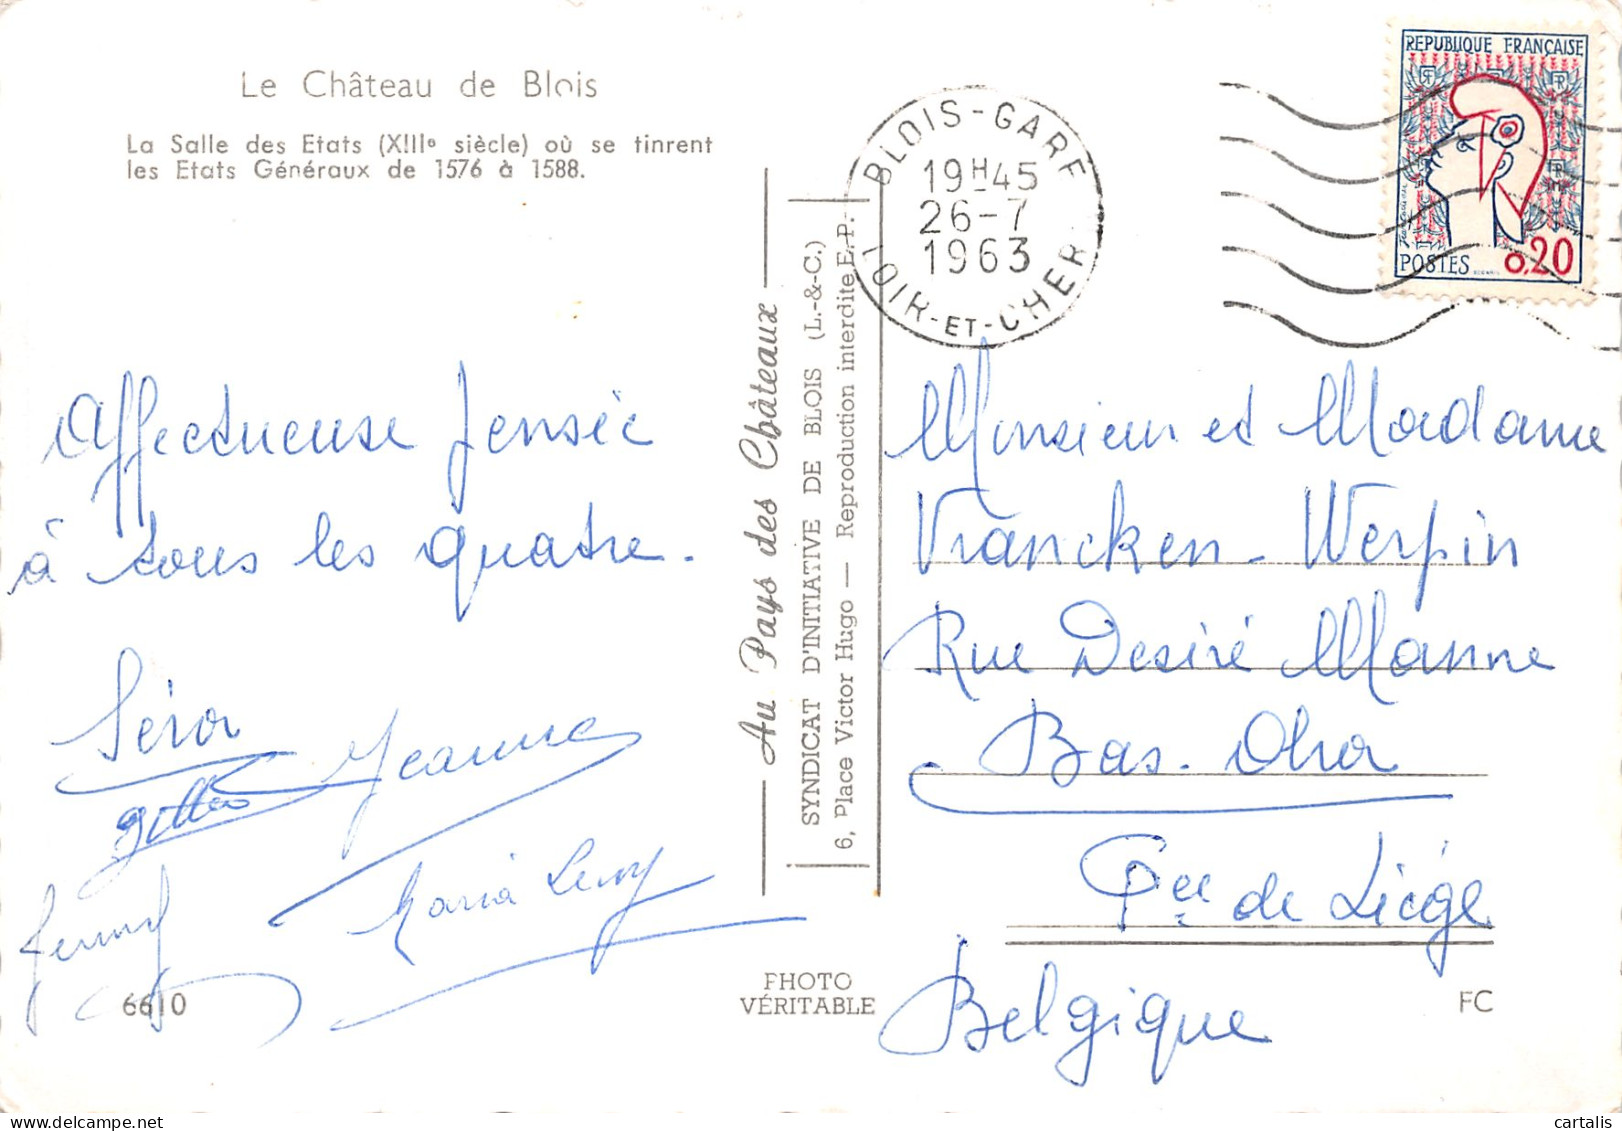 Le Château de Blois
La Salle des Etats (XIIIe siècle) où se tinrent
les Etats Généraux de 1576 à 1588.
Affectueuse pensée
à tous les quatre.
Jeanne
Maria
6610
Au Pays des Châteaux
SYNDICAT D'INITIATIVE DE BLOIS (L.-&-C.)
6, Place Victor Hugo — Reproduction interdite E.P.
PHOTO
VÉRITABLE
BLOIS-GARE
19H45
26-7
1963
LOIR-ET-CHER
REPUBLIQUE FRANÇAISE
POSTES 0,20
Monsieur et Madame
Vrancken-Werpin
Rue Desiré Manne
Bas-Oha
Pce de Liége
Belgique
FC
cartalis